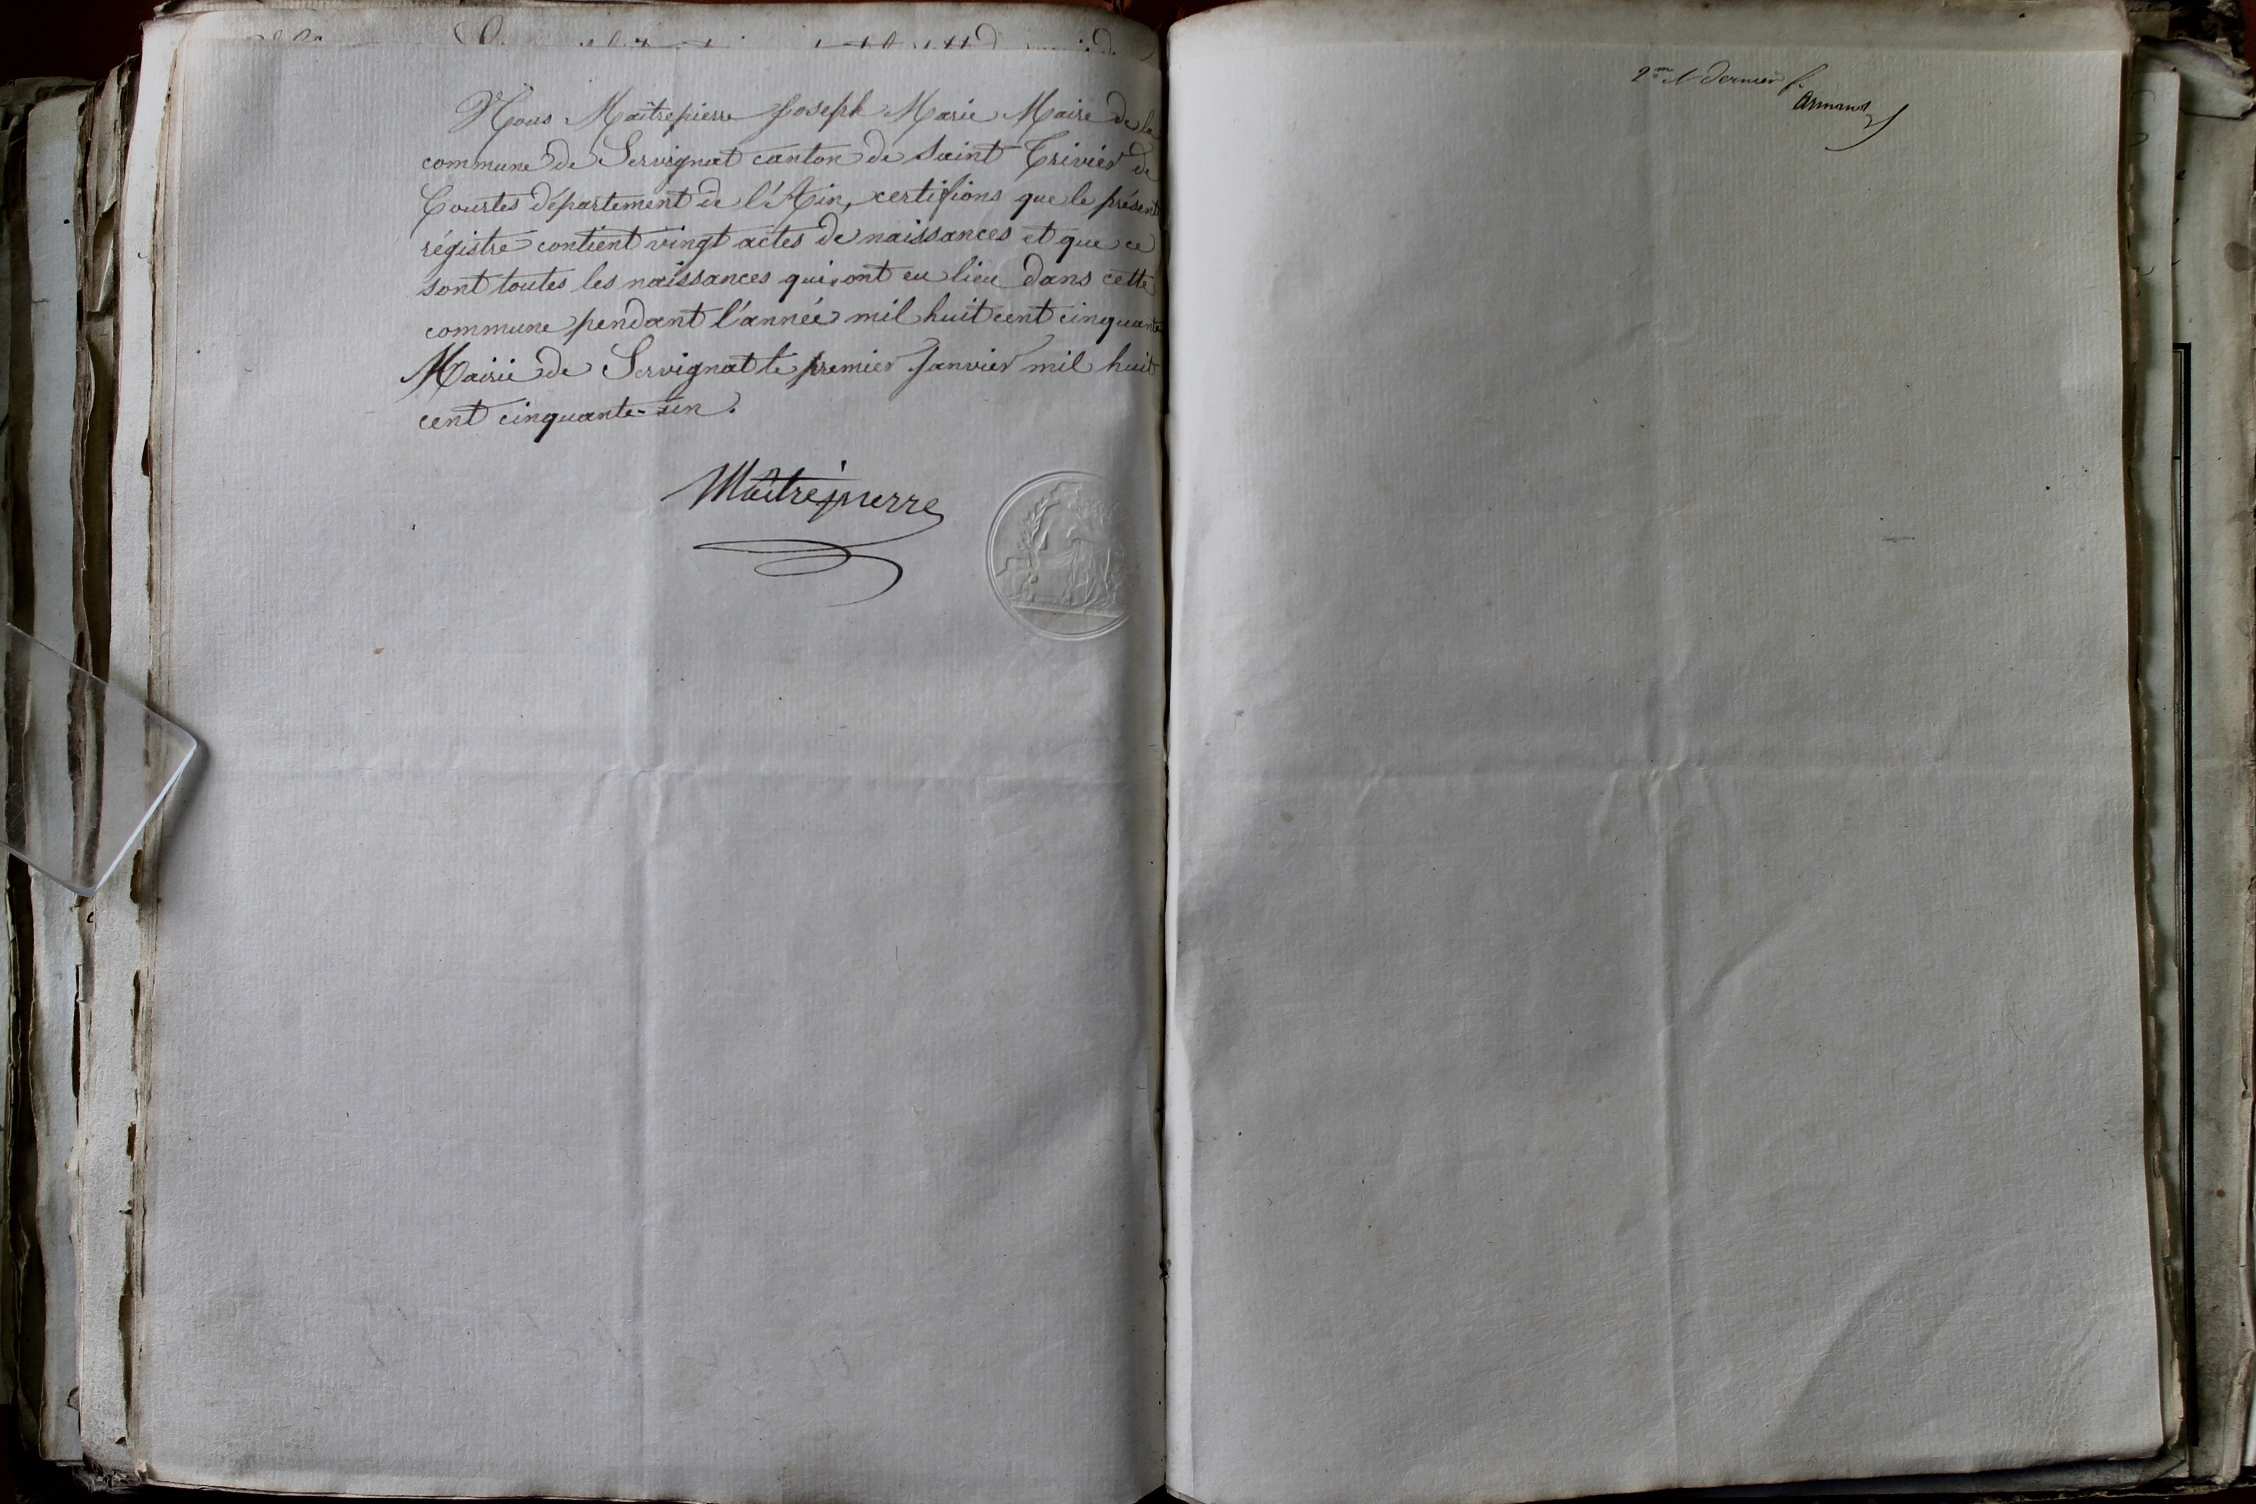 Nous Maîtrepierre Joseph Marie Maire de la
commune de Servignat canton de Saint Trivier de
Courtes département de l'Ain, certifions que le présent
régistre contient vingt actes de naissances et que ce
sont toutes les naissances qui ont eu lieu dans cette
commune pendant l'année mil huit cent cinquante
Mairie de Servignat le premier Janvier mil huit
cent cinquante-un.
Maîtrepierre
dernier f.
Armand